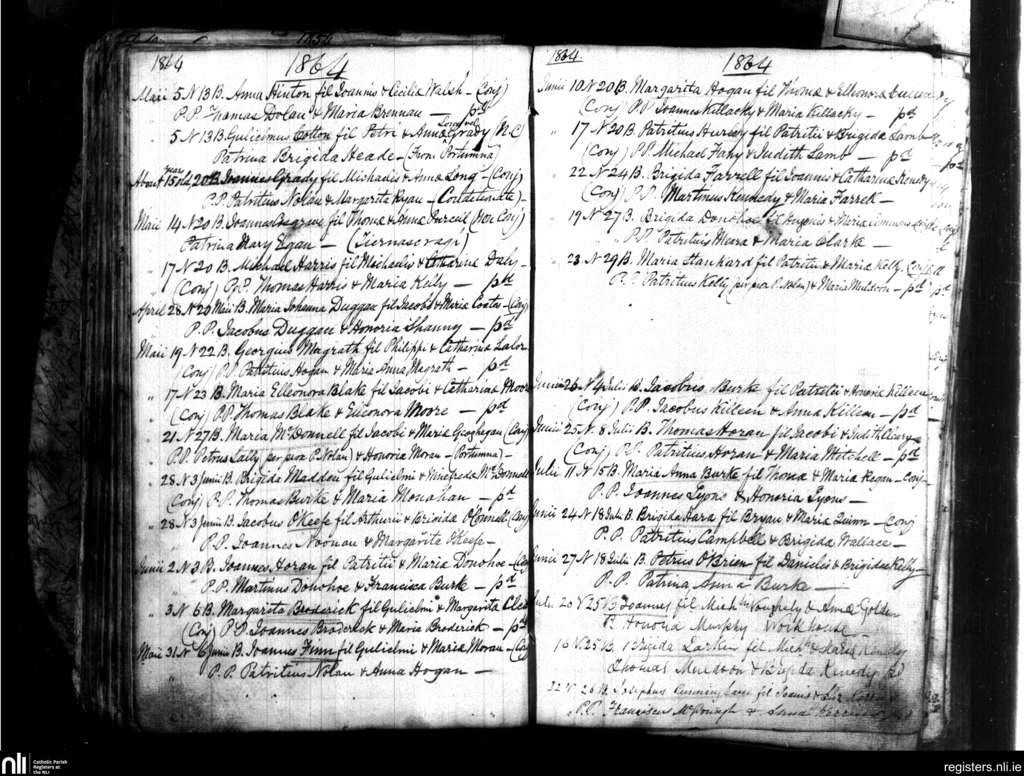 1864
1864
Maii 5 N 13 B. Anna Hinton fil Joannis & Cecilia Walsh - (Conj)
P.P. Thomas Dolan & Maria Brennan - pd
" 5 N 13 B. Gulielmus Cotton fil Petri & Anna Grady (N.C)
Patrina Brigida Heade - (From Portumna)
About 15 old 20 B. Joannes Grady fil Michaelis & Anna Long - (Conj)
P.P. Patritius Nolan & Margarita Ryan -
Maii 14 N 20 B. Joannes fil Thomae & Anna Purcell (Non Conj)
Patrina Mary Egan - (Tiernascragh)
" 17 N 20 B. Michael Harris fil Michaelis & Catharina Daly -
(Conj) P.P. Thomas Harris & Maria Kelly - pd
April 28 N 20 Maii B. Maria Johanna Duggan fil Jacobi & Maria Coates - (Conj)
P.P. Jacobus Duggan & Honoria Shanny - pd
Maii 19 N 22 B. Georgius Magrath fil Philippi & Catharina Lalor
(Conj) P.P. Patritius Hogan & Maria Anna Magrath - pd
" 17 N 23 B. Maria Elleonora Blake fil Jacobi & Catharina Moore
(Conj) P.P. Thomas Blake & Elleonora Moore - pd
" 21 N 27 B. Maria McDonnell fil Jacobi & Maria Geoghegan (Conj)
P.P. Petrus Lally per prox P. Nolan) & Honoria Moran - Portumna) -
" 28 N 3 Junii B. Brigida Madden fil Gulielmi & Winefreda McDonnell
(Conj) P.P. Thomas Burke & Maria Monahan - pd
" 28 N 3 Junii B. Jacobus O'Keefe fil Arthurii & Brigida O'Connell (Conj)
P.P. Joannes Noonan & Margarita O'Keefe -
Junii 2 N 3 B. Joannes Horan fil Patritii & Maria Donohoe - (Conj)
P.P. Martinus Donohoe & Francisca Burke - pd
" 3 N 6 B. Margarita Broderick fil Gulielmi & Margarita
(Conj) P.P. Joannes Broderick & Maria Broderick - pd
Maii 31 N 6 Junii B. Joannes Finn fil Gulielmi & Maria Moran - (Conj)
P.P. Patritius Nolan & Anna Hogan -
1864
1864
Junii 10 N 20 B. Margarita Hogan fil Thomae & Elleonora
(Conj) P.P. Joannes Killacky & Maria Killacky - pd
" 17 N 20 B. Patritius Hursey fil Patritii & Brigida Lamb
(Conj) P.P. Michael Fahy & Judith Lamb - pd
" 22 N 24 B. Brigida Farrell fil Joannis & Catharina Kenedy
(Conj) P.P. Martinus Kennedy & Maria Farrell -
" 19 N 27 B. Brigida Donohoe fil Eugenis & Maria
P.P. Patritius Meara & Maria Clarke -
" 23 N 29 B. Maria Stankard fil Patritii & Maria Kelly (Conj)
P.P. Patritius Kelly (per prox P. Nolan) & Maria Muldoon - pd
Junii 26 N 4 Julii B. Jacobus Burke fil Patritii & Honoria Killeen
(Conj) P.P. Jacobus Killeen & Anna Killeen - pd
Junii 25 N. 8 Julii B. Thomas Horan fil Jacobi & Judith Cleary
(Conj) P.P. Patritius Horan & Maria Mitchell - pd
Julii 11 N 15 B. Maria Anna Burke fil Thomae & Maria Regan - Conj
P.P. Joannes Lyons & Honoria Lyons -
Junii 24 N 18 Julii B. Brigida Hara fil Bryan & Maria Quinn - Conj
P.P. Patritius Campbell & Brigida Wallace -
Junii 27 N 18 Julii B. Petrus O'Brien fil Danielis & Brigida Kelly
P.P. Patrina Anna Burke -
Julii 20 N 25 B. Joannes fil Mich & Anna Golden
P. Honoria Murphy Workhouse -
16 N 25 B. Brigida Larkin fil Michl & Maria Kenedy
Thomas Muldoon & Brigida Kenedy pd
22 N 26 B. Josephus fil Joannis &
P.P. Franciscus McDonagh & Anna
nli Catholic Parish Registers at the NLI
registers.nli.ie